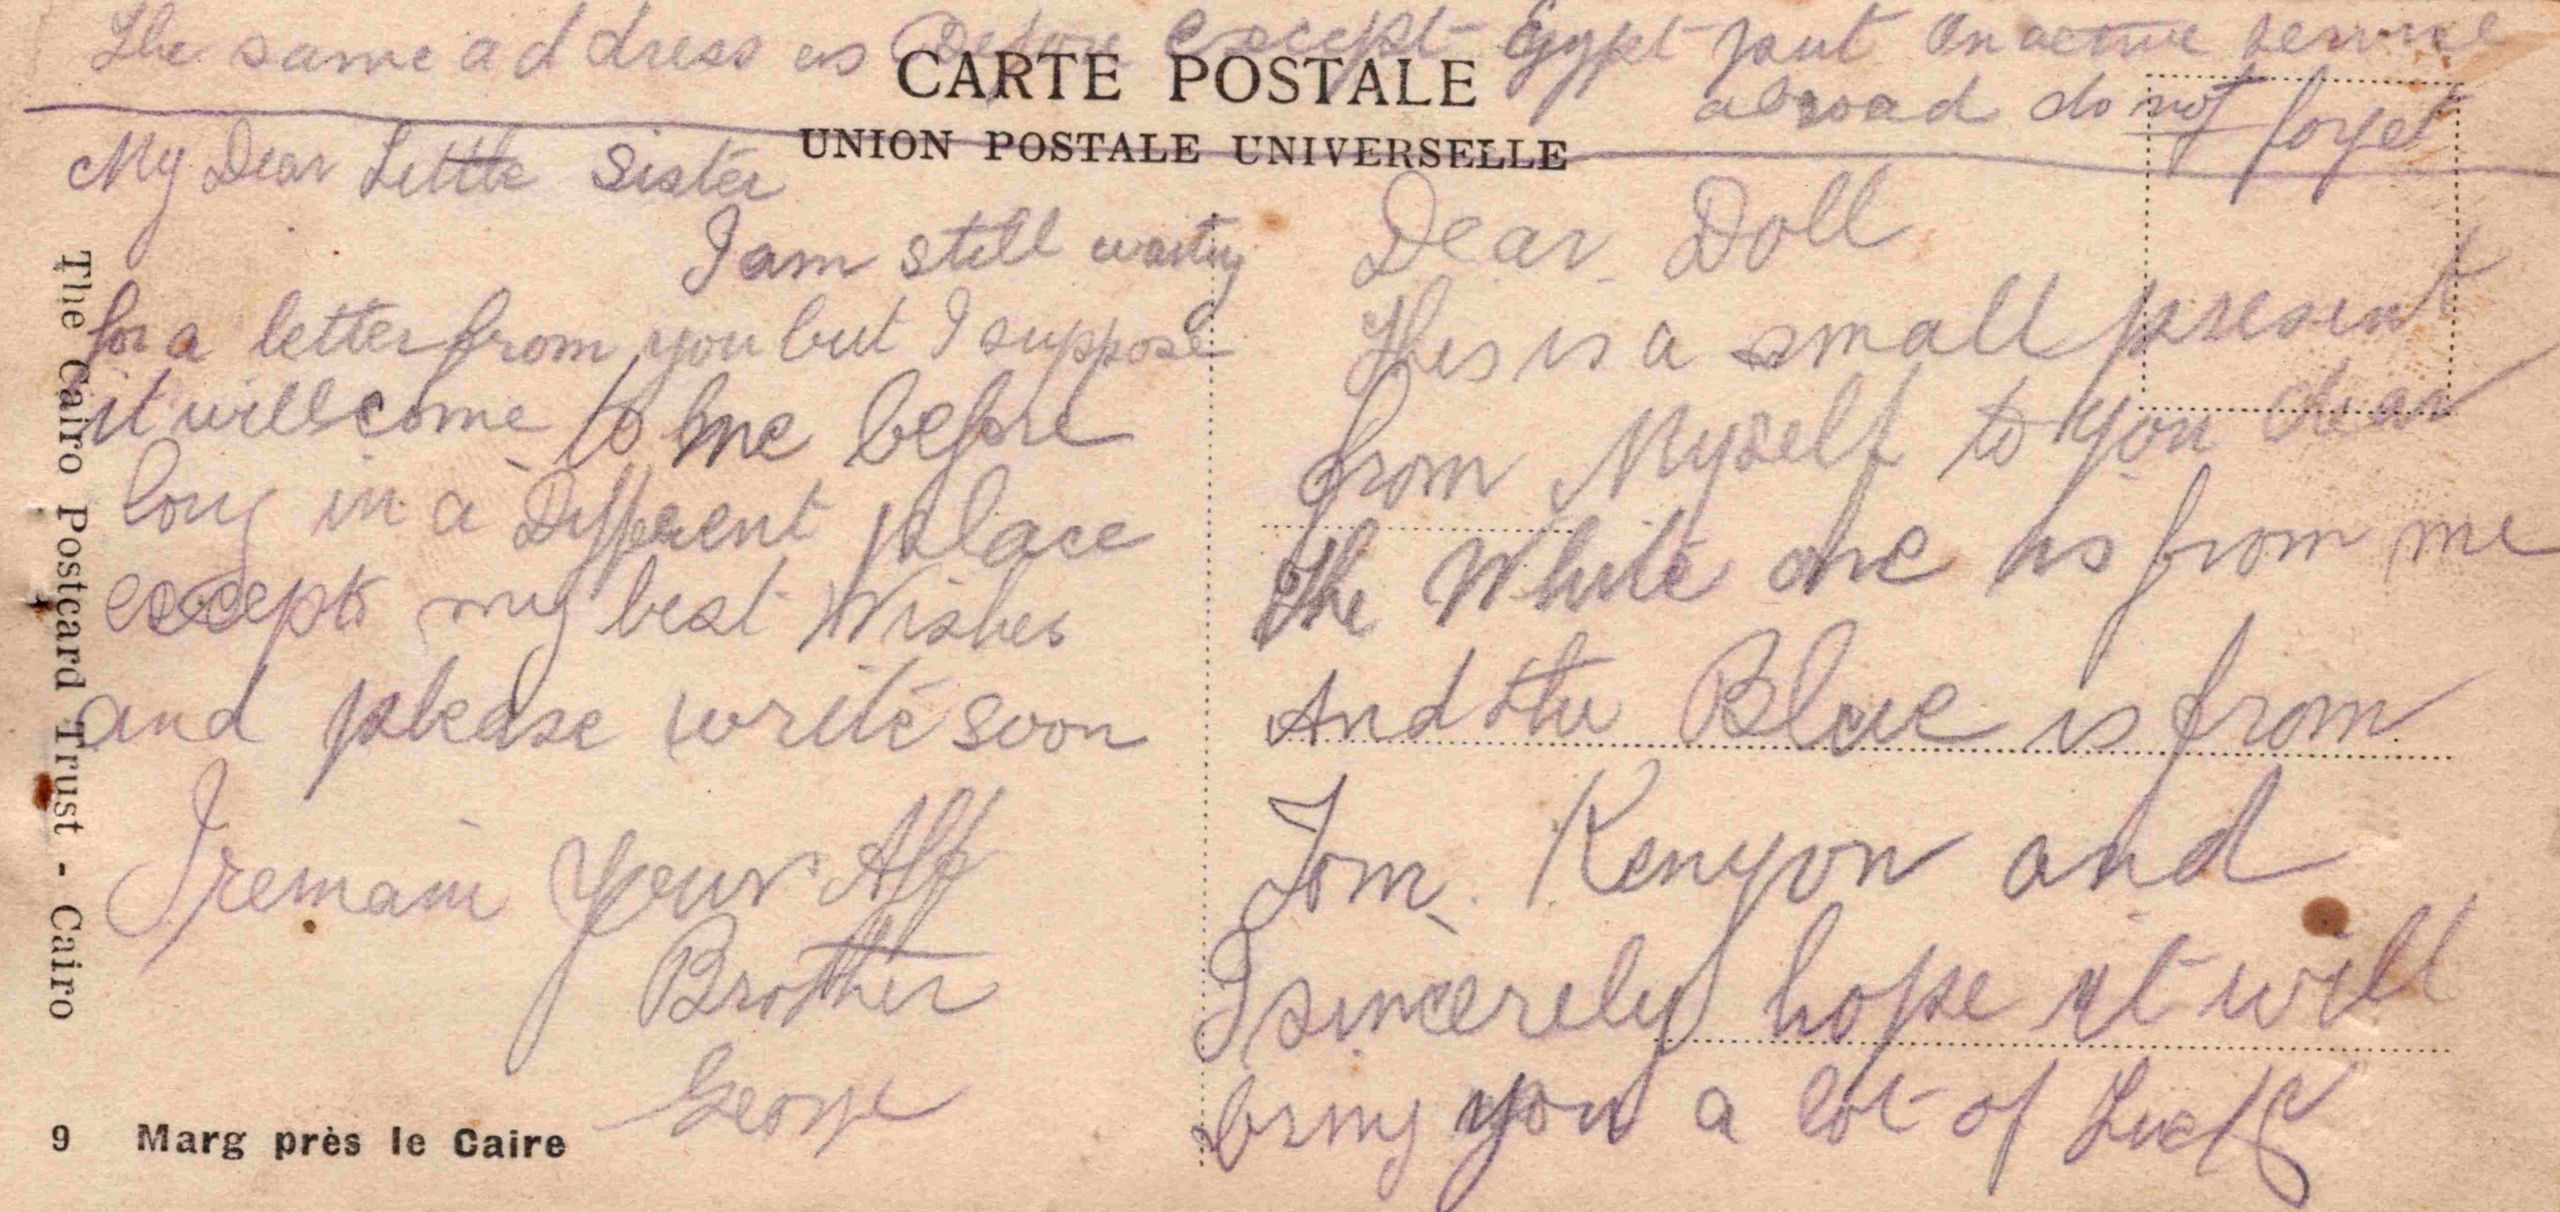 The same address as Before except Egypt put On active service
abroad do not forget
CARTE POSTALE
UNION POSTALE UNIVERSELLE
My Dear Little Sister
I am still waiting
for a letter from you but I suppose
it will come to me before
long in a Different place
except my best Wishes
and please write soon
I remain Your Aff
Brother
George
Dear Doll
This is a small present
from Myself to You dear
The White one is from me
And the Blue is from
Tom Kenyon and
I sincerely hope it will
bring you a lot of Luck
The Cairo Postcard Trust - Cairo
9 Marg près le Caire